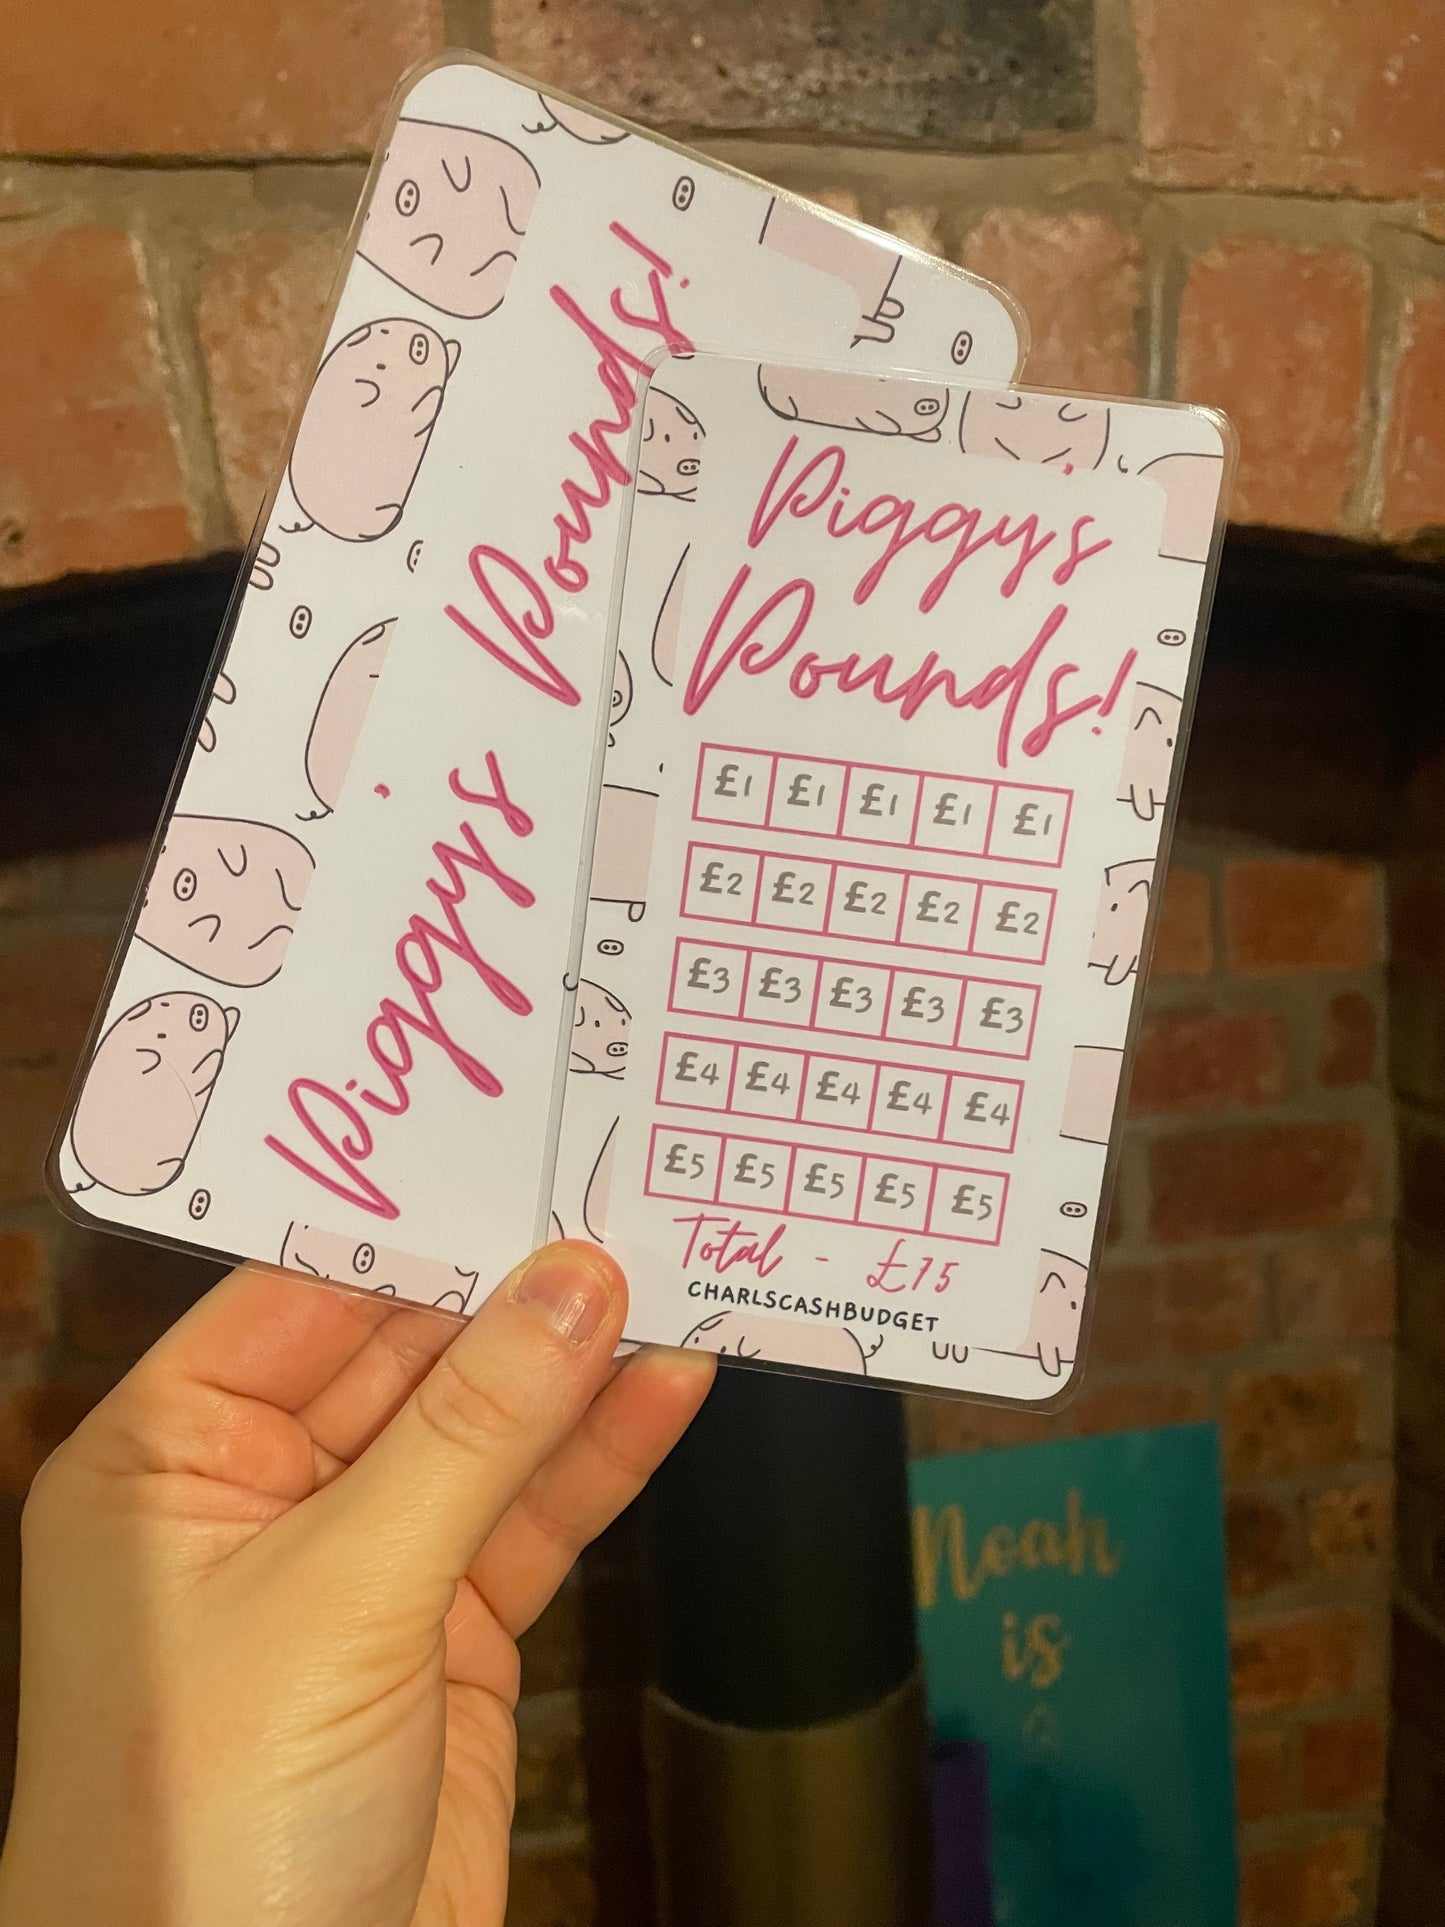 Piggy's Pounds!
Piggy's
Pounds!
£1 £1 £1 £1 £1
£2 £2 £2 £2 £2
£3 £3 £3 £3 £3
£4 £4 £4 £4 £4
£5 £5 £5 £5 £5
Total - £75
CHARLSCASHBUDGET
Noah
is